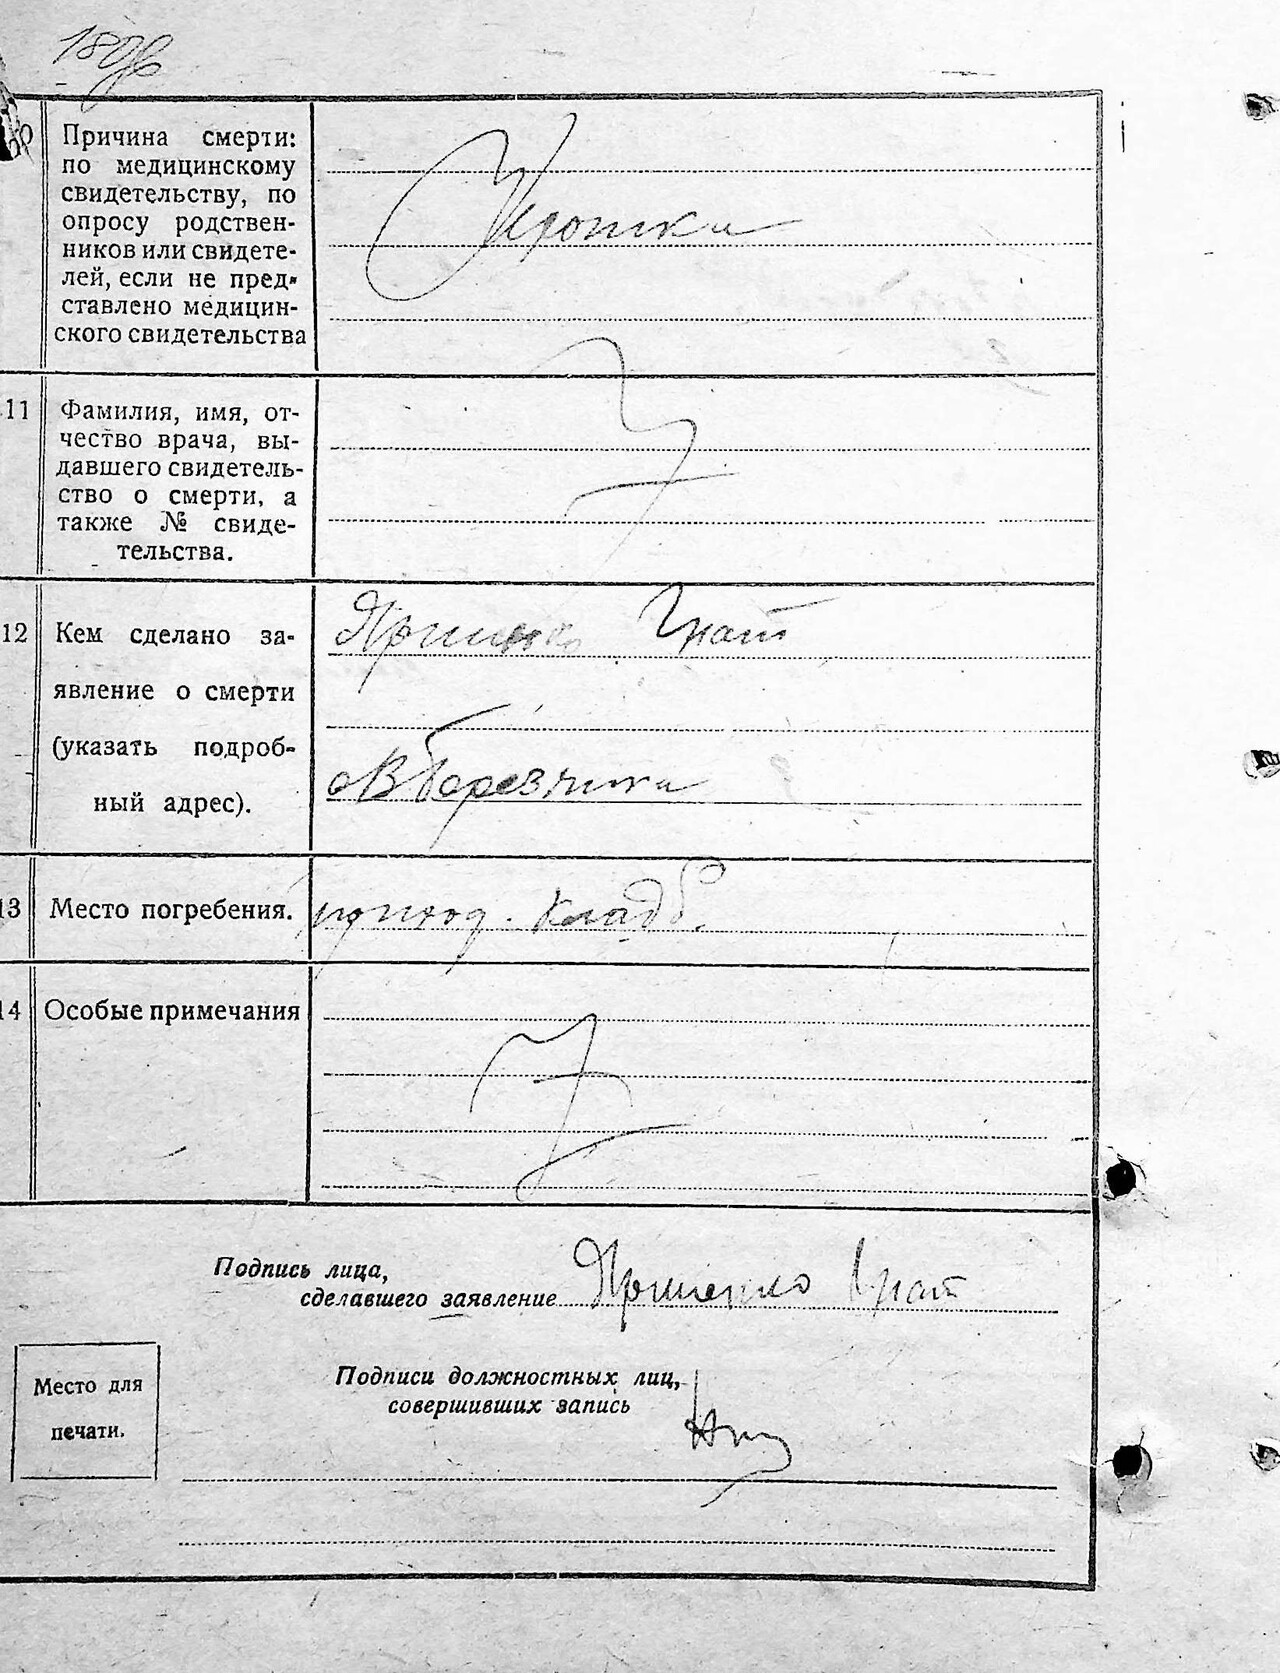 Причина смерти:
по медицинскому
свидетельству, по
опросу родствен-
ников или свидете-
лей, если не пред-
ставлено медицин-
ского свидетельства
11 Фамилия, имя, от-
чество врача, вы-
давшего свидетель-
ство о смерти, а
также № свиде-
тельства.
12 Кем сделано за-
явление о смерти
(указать подроб-
ный адрес).
В Березники
13 Место погребения. приход. кладб.
14 Особые примечания
Подпись лица,
сделавшего заявление
Подписи должностных лиц,
совершивших запись
Место для
печати.